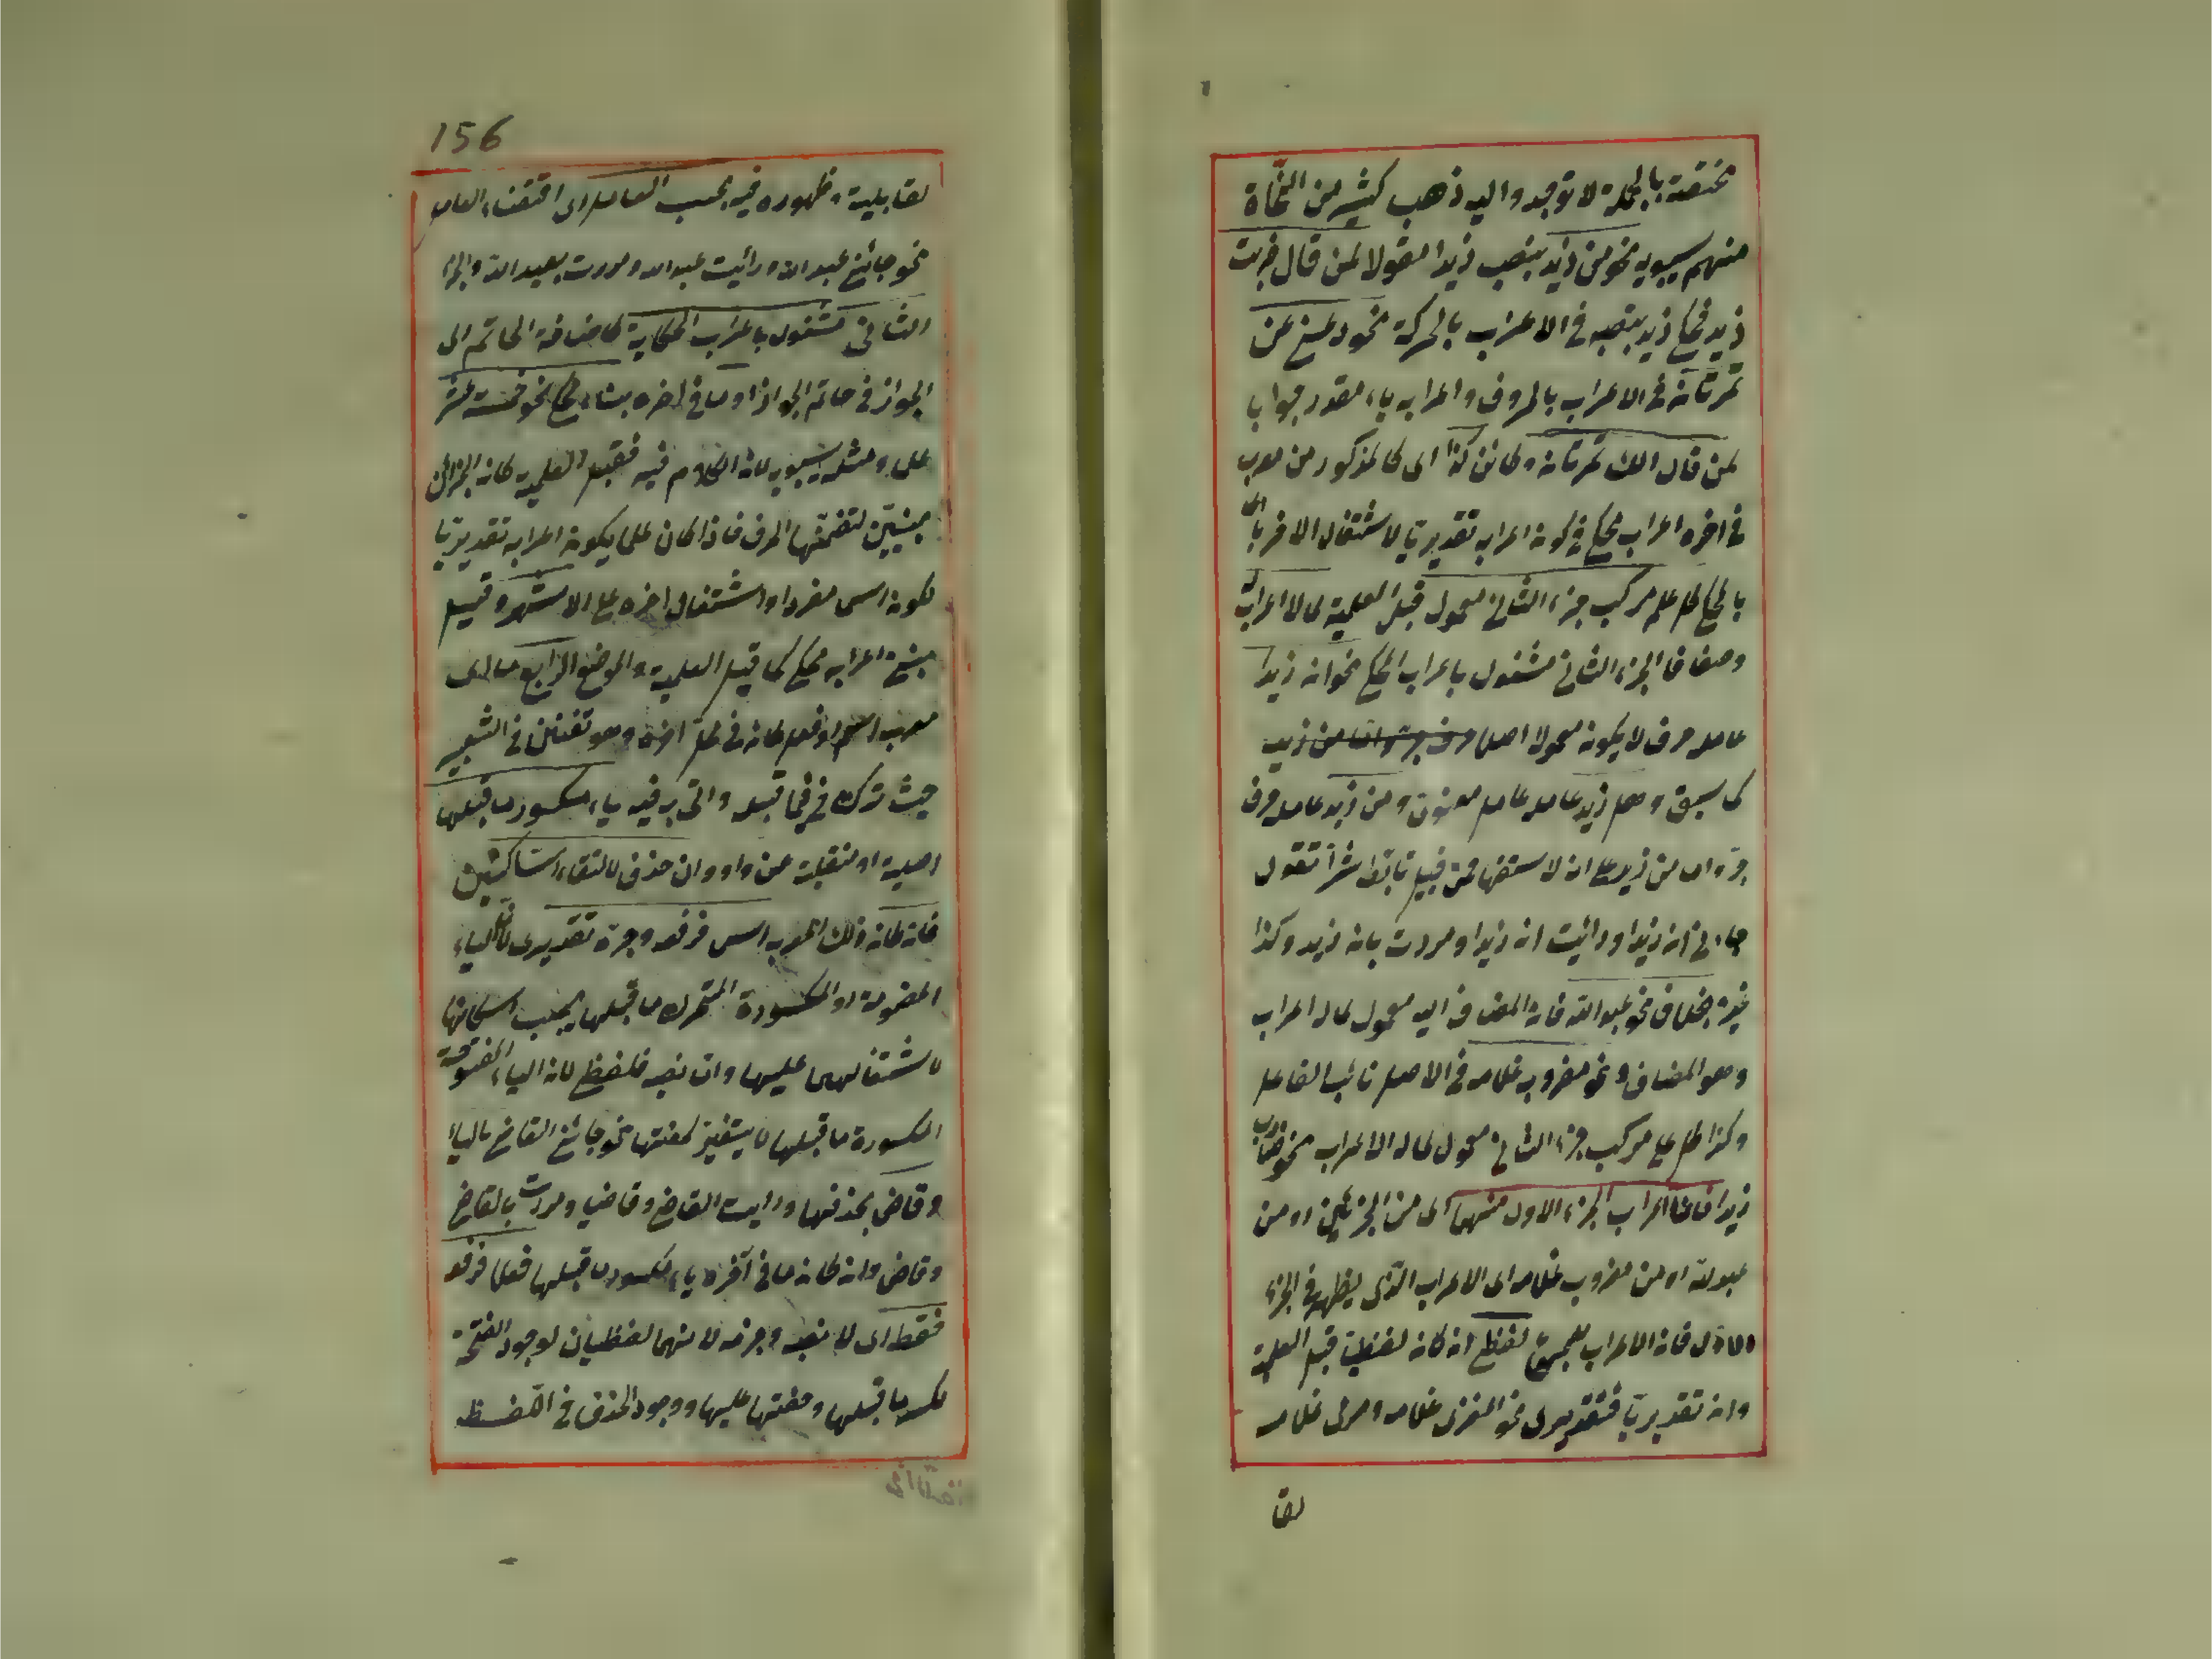 مختصة بالجملة لا توجد واليه ذهب كثير من النحاة
منهم سيبويه نحو من زيد بنصب زيدا مقولا لمن قال ضربت
زيد فحكى زيد بنصبه في الاعراب بالحركة نحو دعني عن
تمرتان في الاعراب بالحروف واعرابه ياء مقدر جوابا
لمن قال الك تمرتان وكائن كذا اى كالمذكور من معرب
في اخره اعراب محكى في كون اعرابه تقديريا لاشتغال الاخر با
بالمحكى كل علم مركب جزءه الثانى معمول قبل العلمية لما لا اعراب له
ومضافا الجزء الثانى مشغول باعراب المحكى نحو ان زيدا
عامله حرف لا يكون معمولا اصلا
كما سبق وهل زيد عامله عامل معنوى ومن زيد عامله حرف
جر واما من زيد على ان الاستفهام فمن قبيل تابط شرا تقول
جاءنى ان زيدا ورأيت ان زيدا ومررت بان زيد وكذا
غيره بخلاف نحو عبد الله فان المضاف اليه معمول لما له اعراب
وهو المضاف ونحو مضروب غلامه في الاصل نائب الفاعل
وكذا كل علم مركب جزءه الثانى معمول لما له الاعراب نحو ضارب
زيدا فان اعراب الجزء الاول منهما اى من الجزئين او من
عبد الله او من مضروب غلامه اى الاعراب الذى يظهر في الجزء
الاول فان الاعراب للمجموع لفظى ان كان لفظيا قبل العلمية
وان تقديريا فتقديرى نحو المغزى غلامه ومرمى غلامه
لقا
156
لقابلية وظهوره فيه بحسب العامل اى اقتضاء العامل
نحو جائنى عبد الله ورأيت عبد الله ومررت بعبد الله والجزء
الثانى مشغول باعراب الحكاية كاضافة الخاتم الى
على ومثله سيبويه لان الكلام فيه فقبل العلمية كان الجزآن
مبنيين لتضمنهما الحرف فاذا كان علما يكون اعرابه تقديريا
لكونه اسما مفردا واشتغال اخره على الاشهر وقيل
مبنى اعرابه محكى كما قبل العلمية والموضع الرابع ما اى
معرب اسم او فعل كان في اخره وهو تفنن في التعبير
حيث ترك في فيما قبله واتى به فيه ياء مكسور ما قبلها
اصلية او منقلبة عن واو وان حذف لالتقاء الساكنين
فان كان ذلك المعرب اسما فرفعه وجره تقديرى لان الياء
المضمومة او المكسورة المتحرك ما قبلها يجب اسكانها
لاشتغالهما عليها واما نصبه فلفظى لان الياء المفتوحة
المكسورة ما قبلها لا يتغير لخفتها نحو جائنى القاضى بالياء
وقاض بحذفها ورأيت القاضى وقاضيا ومررت بالقاضى
وقاض وان كان ما في آخره ياء مكسور ما قبلها فعلا فرفعه
فقط اى لا نصبه وجزمه لانهما لفظيان لوجود الفتحة
لكسر ما قبلها وخفتها عليها ووجود الحذف في اللفظ